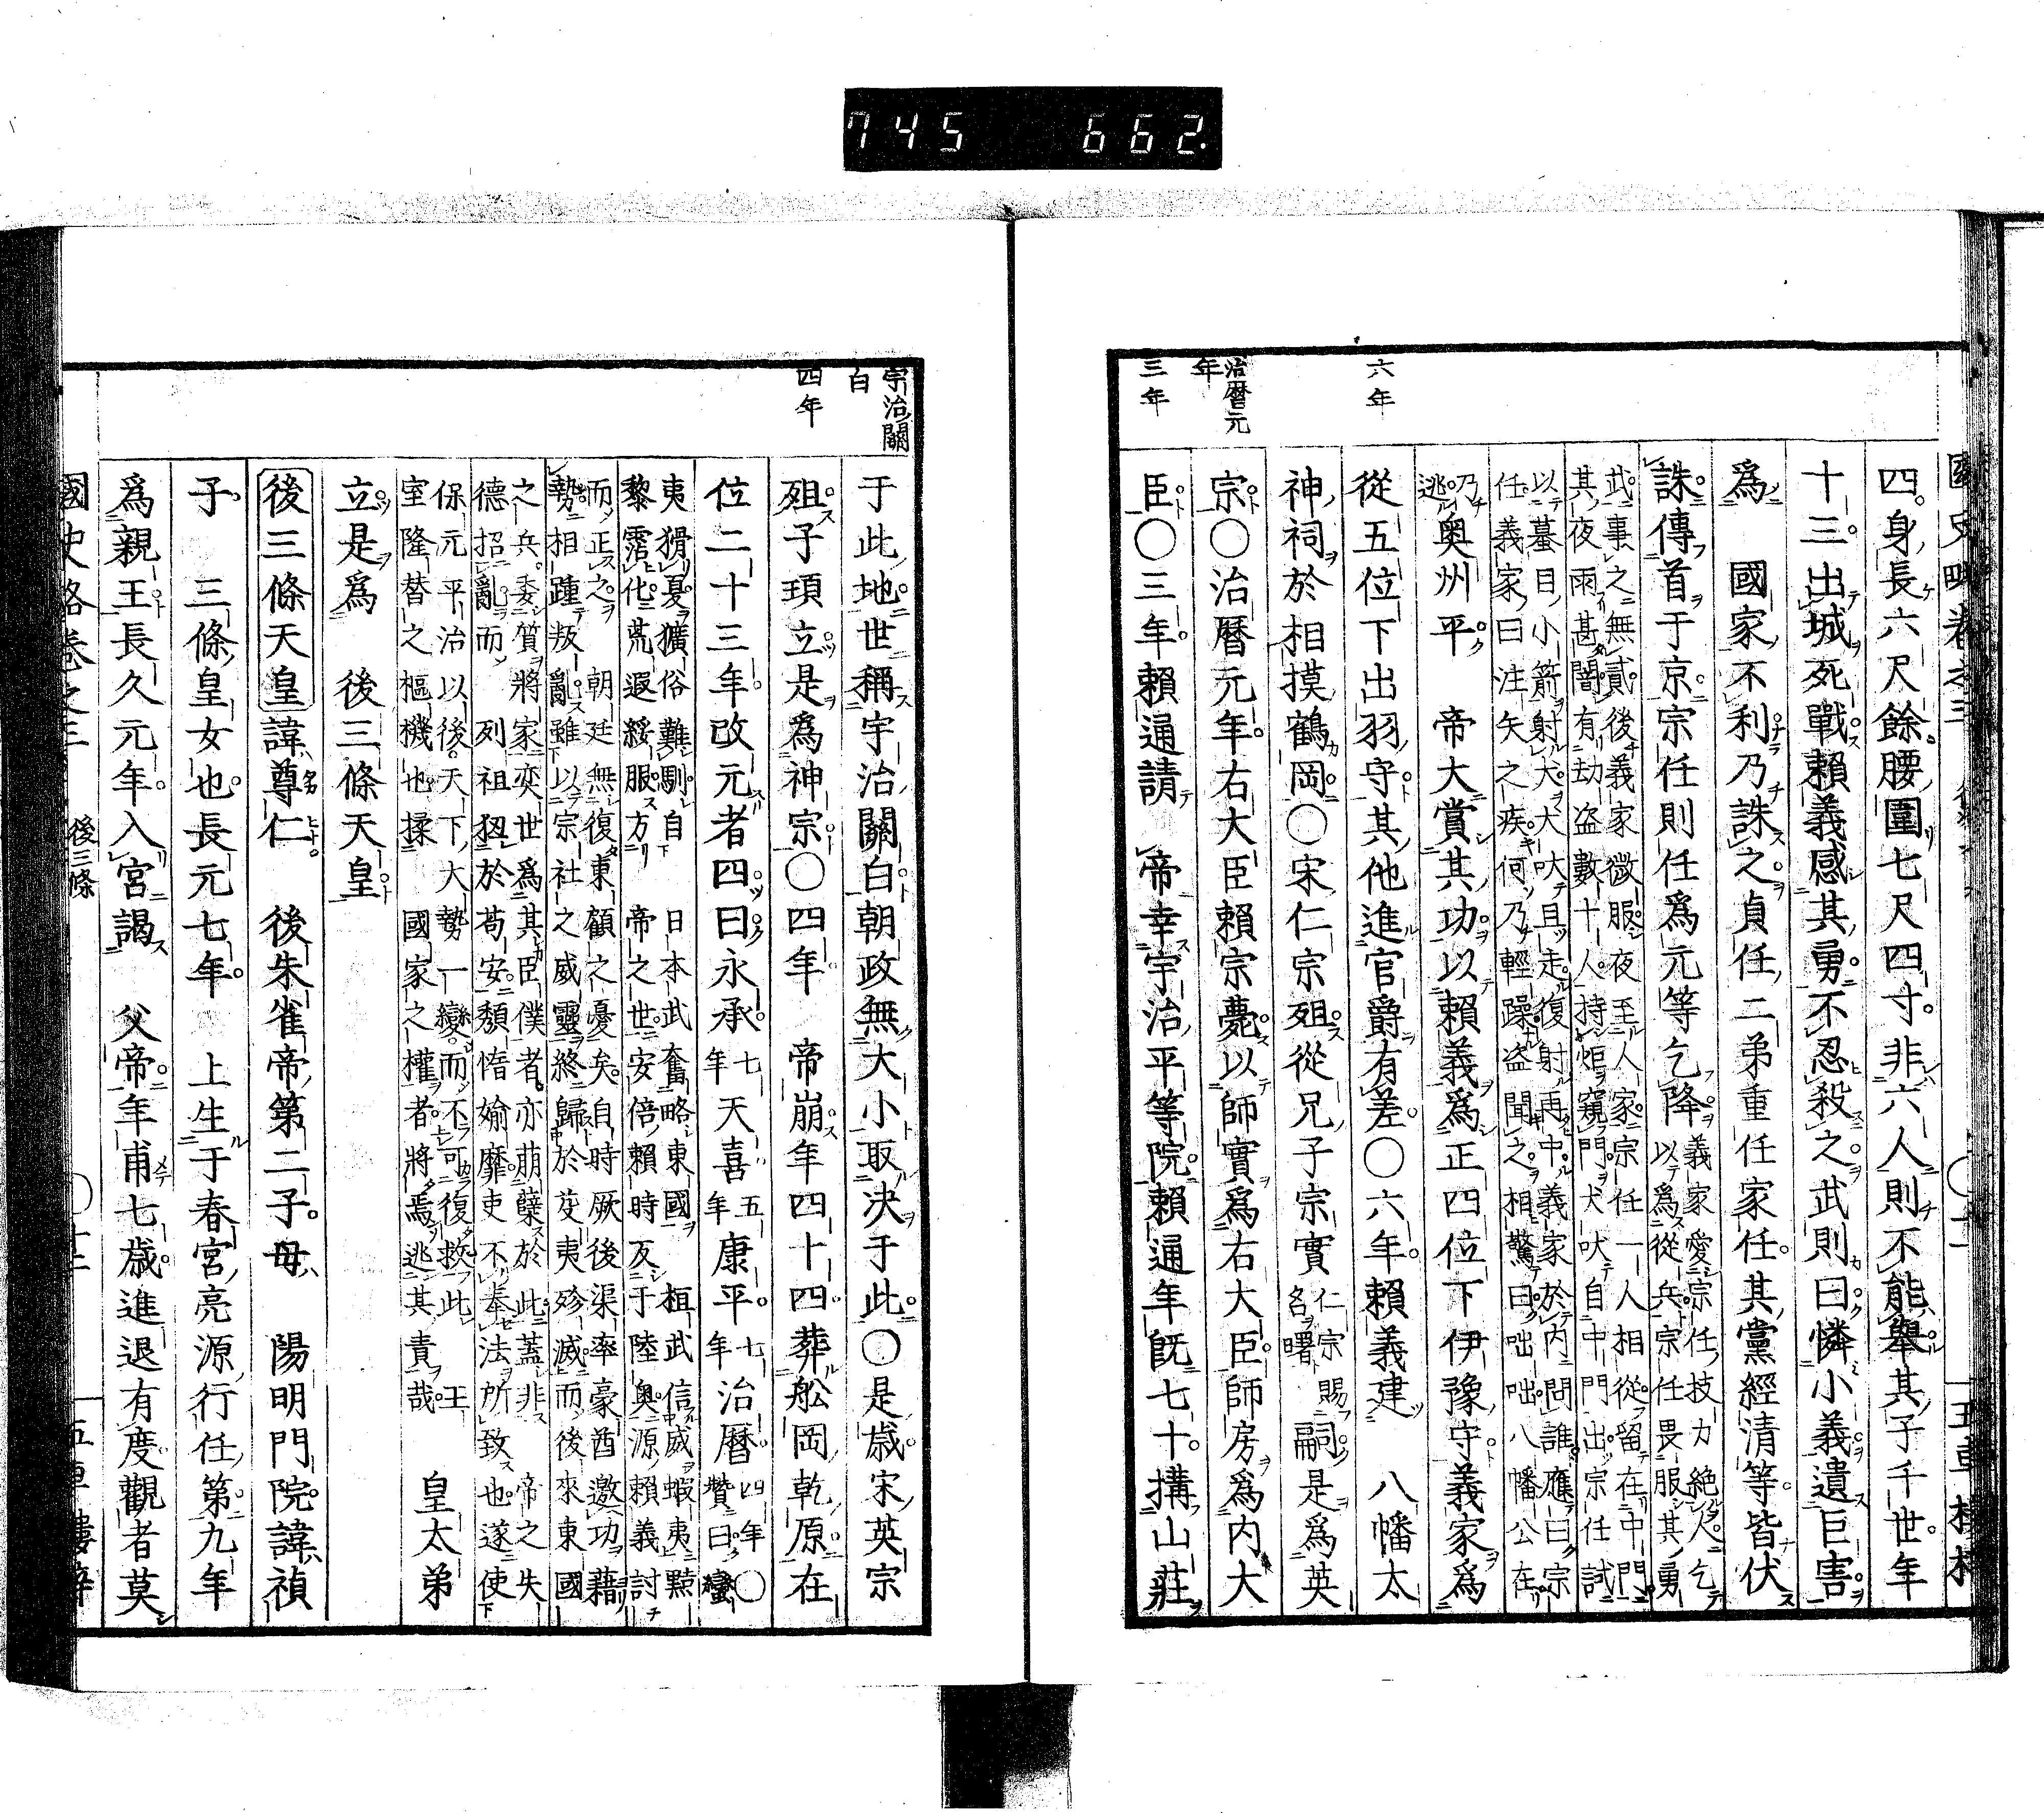 745 662
四身長六尺餘腰圍七尺四寸非六人則不能舉其子千世年
十三出城死戰賴義感其勇不忍殺之武則曰憐小義遺巨害
爲 國家不利乃誅之貞任二弟重任家任其黨經清等皆伏
誅傳首于京宗任則任爲元等乞降
義家愛宗任技力絶人乞
以爲從兵宗任畏服其勇
武事之無貳後義家微服夜至人家宗任一人相從留在中門
其夜雨甚闇有劫盗數十人持炬窺門犬吠自中門出宗任試
以蟇目小箭射犬犬吠且走復射再中義家於内問誰應曰宗
任義家曰注矢之疾何乃輕躁盗聞之相驚曰咄咄八幡公在
乃
逃
奥州平 帝大賞其功以賴義爲正四位下伊豫守義家爲
從五位下出羽守其他進官爵有差〇六年賴義建 八幡太
神祠於相摸鶴岡〇宋仁宗殂從兄子宗實
仁宗賜
名曙
嗣是爲英
宗〇治暦元年右大臣賴宗薨以師實爲右大臣師房爲内大
臣〇三年賴通請 帝幸宇治平等院賴通年既七十搆山莊
六年
治暦元
年
三年
于此地世稱宇治關白朝政無大小取決于此〇是歳宋英宗
殂子頊立是爲神宗〇四年 帝崩年四十四葬舩岡乾原在
位二十三年改元者四曰永承
七
年
天喜
五
年
康平
七
年
治暦
四年〇
贊曰蠻
夷猾夏獷俗難馴自 日本武奮略東國 桓武信威蝦夷黠
黎霑化荒遐綏服方 帝之世安倍賴時反于陸奥源賴義討
而正之 朝廷無復東顧之憂矣自時厥後渠率豪酋邀功藉
勢相踵叛亂雖以宗社之威靈終歸於芟夷殄滅而後來東國
之兵委質將家奕世爲其臣僕者亦萌孽於此蓋非 帝之失
德招亂而 列祖狃於苟安頽惰媮靡吏不奉法所致也遂使
保元平治以後天下大勢一變而不可復救此 王
室隆替之樞機也揉 國家之權者將焉逃其責哉
皇太弟
立是爲 後三條天皇
後三條天皇諱尊仁 後朱雀帝第二子母 陽明門院諱禎
子 三條皇女也長元七年 上生于春宮亮源行任第九年
爲親王長久元年入宮謁 父帝年甫七歳進退有度觀者莫
宇治關
白
四年
國史略卷之三 後三條